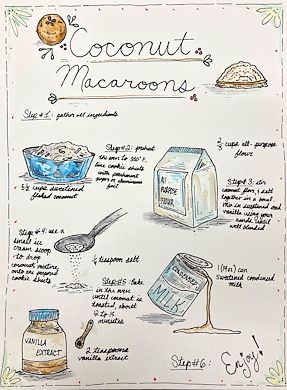 Coconut
Macaroons
Step #1: gather all ingredients
Step #2: preheat
the oven to 350° F.
line cookie sheets
with parchment
paper or aluminum
foil
2/3 cups all-purpose
flour
5 1/2 cups sweetened
flaked coconut
ALL
PURPOSE
FLOUR
Step #3: stir
coconut, flour, & salt
together in a bowl.
Mix in condensed milk and
vanilla using your
hands until
well blended
Step #4: use a
small ice
cream scoop
to drop
coconut mixture
onto the prepared
cookie sheets
1/4 teaspoon salt
Step #5: Bake
in the oven
until coconut is
toasted, about
12 to 15
minutes
CONDENSED
MILK
1 (14oz) can
sweetened condensed
milk
VANILLA
EXTRACT
2 teaspoons
vanilla extract
Step #6:
Enjoy!